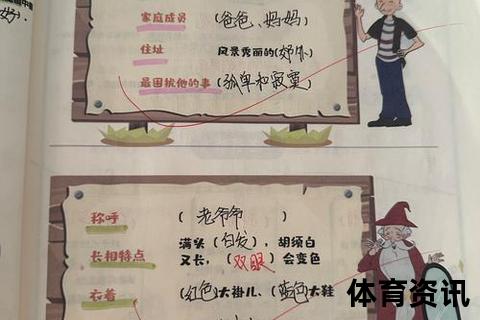 好).
家庭成员 (爸爸、妈妈)
住址 风景秀丽的(郊外)
最困扰他的事 (孤单和寂寞)
称呼 (老爷爷)
满头(白发),胡须白
长相特点 又长,(双眼)会变色
衣着 (红色)大褂儿、(蓝色)大鞋
体育资讯